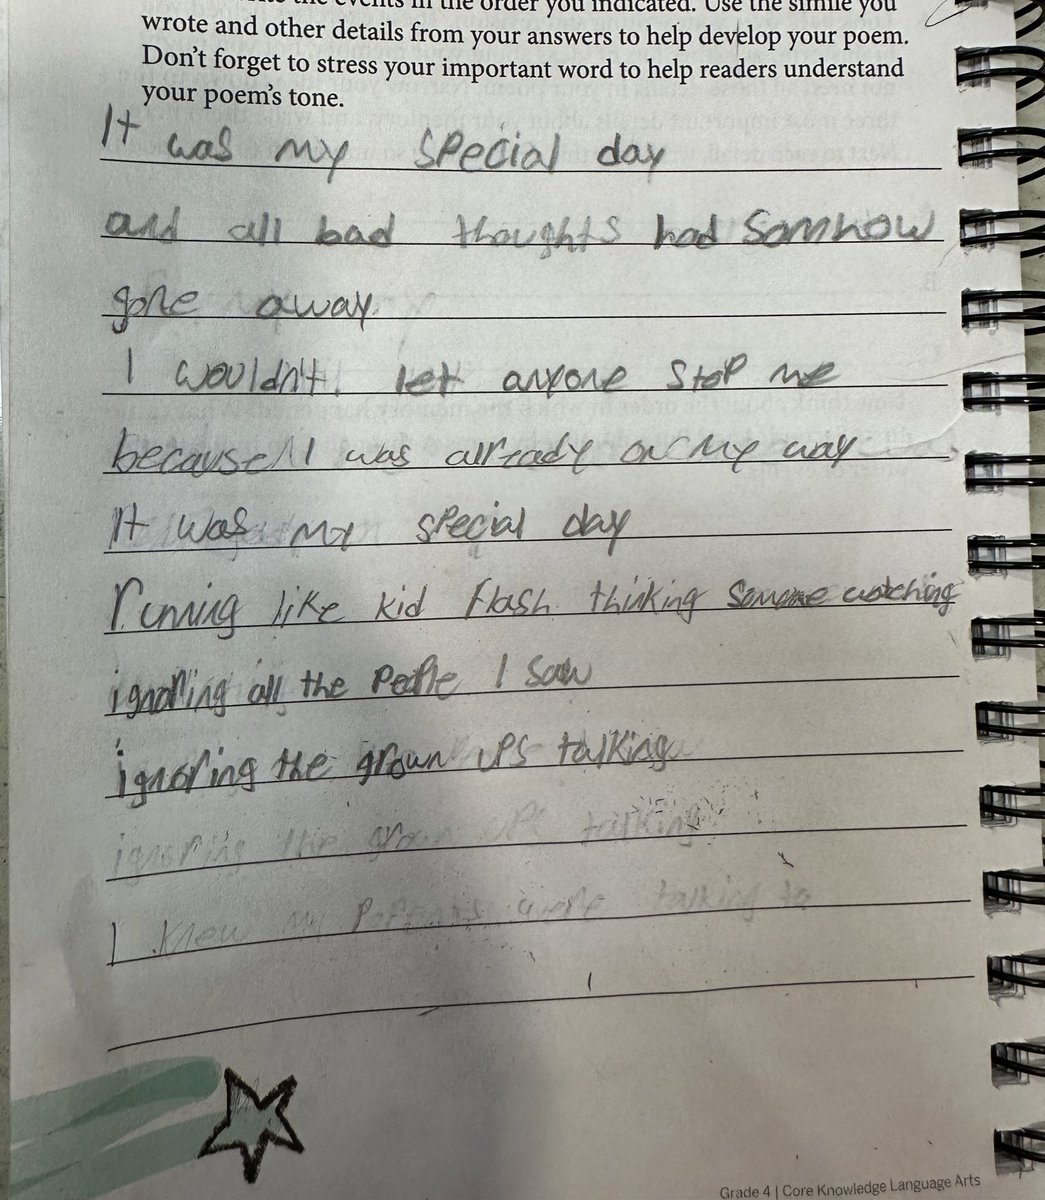 the events in the order you indicated. Use the simile you
wrote and other details from your answers to help develop your poem.
Don't forget to stress your important word to help readers understand
your poem's tone.
It was my special day
and all bad thoughts had Somhow
gone away
I wouldn't let anyone stop me
because I was already on my way
It was my special day
running like kid flash thinking someone watching
ignoring all the people I saw
ignoring the grown ups talking
ignoring the grown ups talking
I knew my were talking to
Grade 4 | Core Knowledge Language Arts